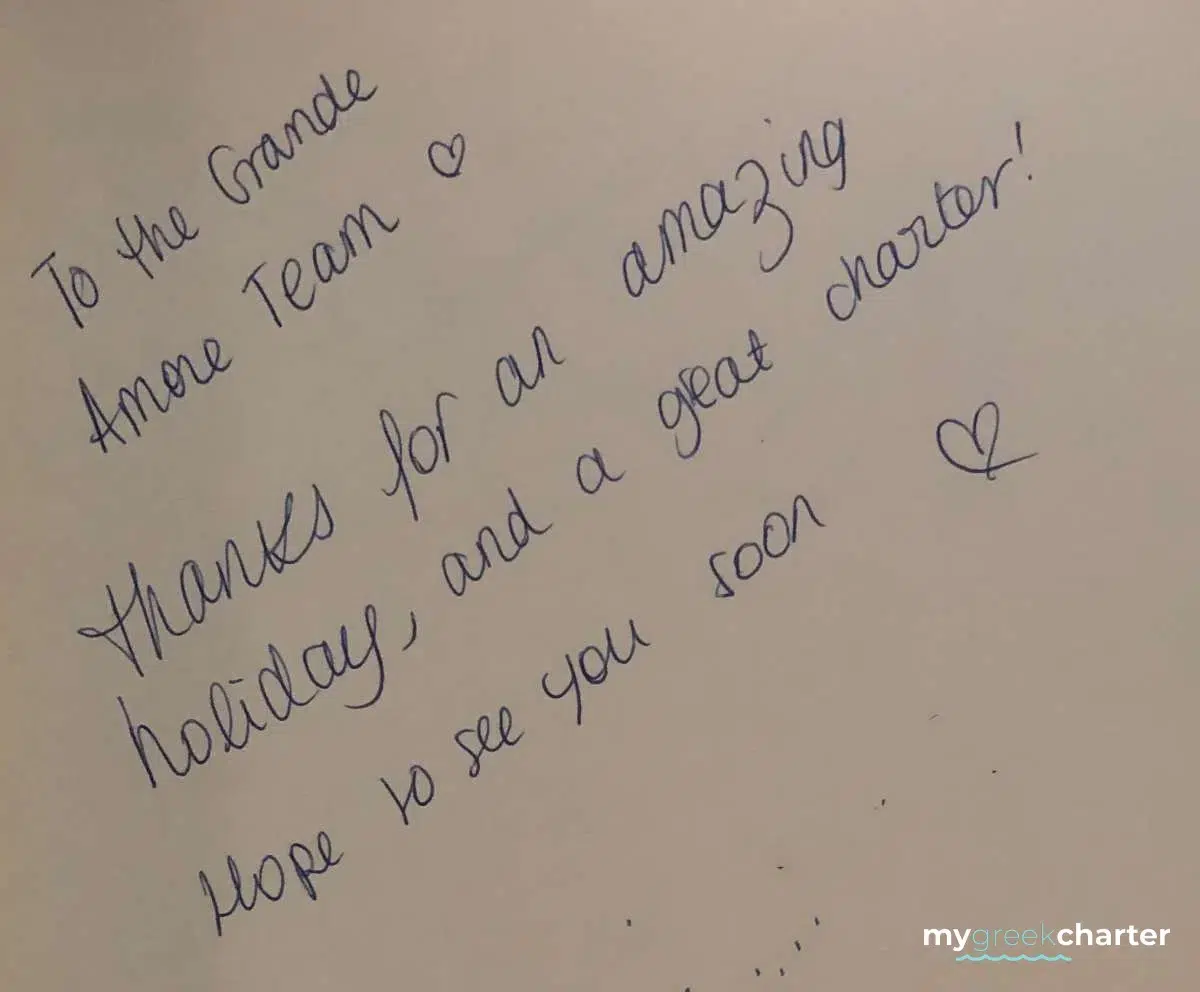 To the Grande
Amore Team ♡
Thanks for an amazing
holiday, and a great charter!
Hope to see you soon ♡
mygreekcharter